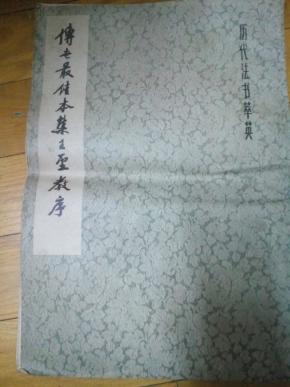 历代法书萃英
传世最佳本集王圣教序